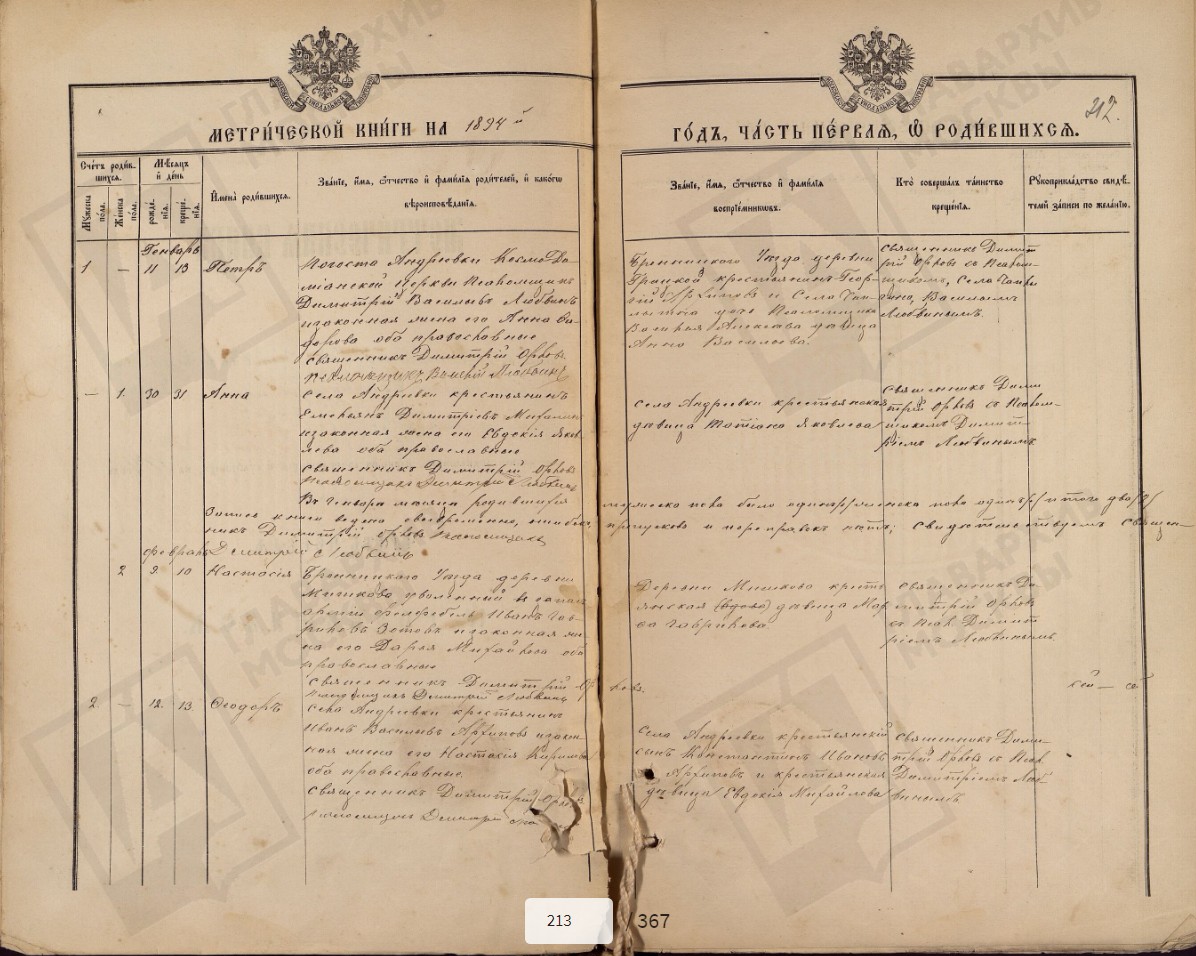 212.
МЕТРИ́ЧЕСКОЙ КНИ́ГИ НА 1894 й
ГО́ДЪ, ЧА́СТЬ ПЕ́РВАЯ, Ѿ РОДИ́ВШИХСЯ.
Сче́тъ роди́вшихся.
Мѣ́сяцъ и де́нь
Мꙋжеска по́ла.
Же́нска по́ла.
рожде́нія.
креще́нія.
Имена̀ роди́вшихся.
Зва́ніе, и́мя, ѻ́тчество и фами́лія роди́телей, и како́гѡ
вѣроисповѣ́данія.
Зва́ніе, и́мя, ѻ́тчество и фами́лія
воспріе́мниковъ.
Кто̀ соверша́лъ та́инство
креще́нія.
Рꙋкоприкла́дство свидѣ́-
телей за́писи по жела́нію.
Генварь
1 — 11 13 Петръ
Погоста Андреевки Космо Да-
міанской Церкви Псаломщикъ
Димитрій Васильевъ Любвинъ
и законная жена его Анна
оба православные
Священникъ Димитрій Орловъ
Бронницкаго Уѣзда деревни
крестьянинъ Геор-
гій и Села
Василья Алексѣева дѣвица
Анна Васильева.
Священникъ Димит-
рій Орловъ съ Псалом-
щикомъ, Села
Василіемъ
Любвинымъ.
— 1. 30 31 Анна
Села Андреевки крестьянинъ
Емельянъ Димитріевъ
и законная жена его Евдокія Яков-
лева оба православные
Священникъ Димитрій Орловъ
Псаломщикъ Димитрій Любвинъ
Села Андреевки крестьянская
дѣвица Татіана Яковлева
Священникъ Дими-
трій Орловъ съ Псалом-
щикомъ Димит-
ріемъ Любвинымъ
Въ Генварѣ мѣсяцѣ родившихся мужеска пола было одинъ /1/ женска пола одинъ /1/ итого два /2/
Запись въ книгѣ ведена своевременно, ошибокъ, пропусковъ и переправокъ нѣтъ; Свидѣтельствуемъ Священ-
никъ Димитрій Орловъ Псаломщикъ
Февраль Димитрій Любвинъ
2 9. 10 Настасія
Бронницкаго Уѣзда деревни
Мишкова уволенный въ запасъ
арміи фельдфебель Иванъ Гав-
риловъ Зотовъ и законная же-
на его Дарья Михайлова оба
православные
Священникъ Димитрій Орловъ.
Псаломщикъ Димитрій Любвинъ
Деревни Мишкова кресть-
янская (вдова) дѣвица Мар-
ѳа Гаврилова
Священникъ Ди-
митрій Орловъ
съ Псал. Димит-
ріемъ Любвинымъ.
2 — 12. 13. Ѳеодоръ
Села Андреевки крестьянинъ
Иванъ Васильевъ Архиповъ и закон-
ная жена его Настасія Кирилова
оба православные.
Священникъ Димитрій Орловъ
Псаломщикъ Димитрій
Села Андреевки крестьянскій
сынъ Константинъ Ивановъ
Архиповъ и крестьянская
дѣвица Евдокія Михайлова
Священникъ Дими-
трій Орловъ съ Псал.
Димитріемъ Люб-
винымъ
213
367
ГЛАВАРХИВ
МОСКВЫ